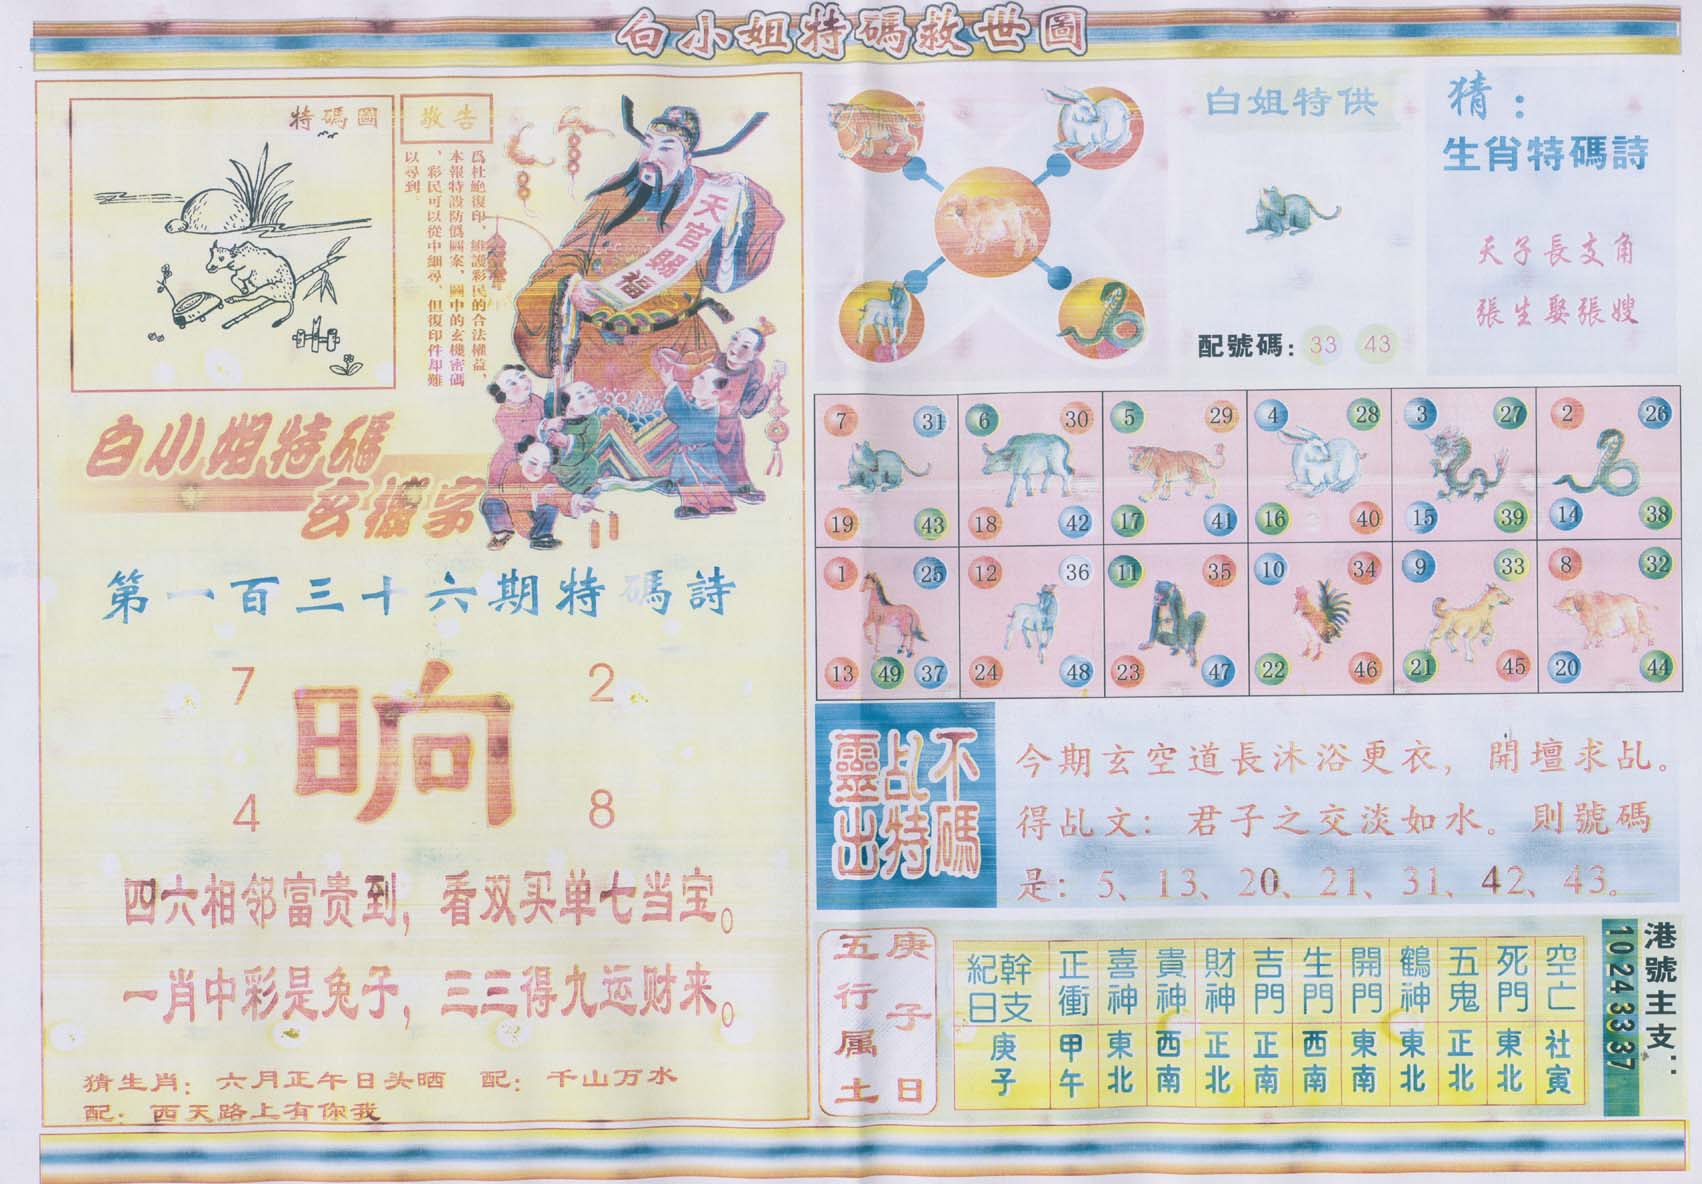 白小姐特碼救世圖
特碼圖
敬告
爲杜絶復印、維護彩民的合法權益、
本報特設防僞圖案，圖中的玄機密碼
，彩民可以從中細尋，但復印件却難
以尋到。
天官賜福
白小姐特碼
玄機字
第一百三十六期特碼詩
7 2
晌
4 8
四六相邻富贵到，看双买单七当宝。
一肖中彩是兔子，三三得九运财来。
猜生肖：六月正午日头晒 配：千山万水
配：西天路上有你我
白姐特供
配號碼：33 43
猜：
生肖特碼詩
天子長支角
張生娶張嫂
7 31 6 30 5 29 4 28 3 27 2 26
19 43 18 42 17 41 16 40 15 39 14 38
1 25 12 36 11 35 10 34 9 33 8 32
13 49 37 24 48 23 47 22 46 21 45 20 44
靈乩不
出特碼
今期玄空道長沐浴更衣，開壇求乩。
得乩文：君子之交淡如水。則號碼
是：5、13、20、21、31、42、43。
庚子日
五行属土
紀日幹支 正衝 喜神 貴神 財神 吉門 生門 開門 鶴神 五鬼 死門 空亡
庚子 甲午 東北 西南 正北 正南 西南 東南 東北 正北 東北 社寅
港號主支：
10 24 33 37